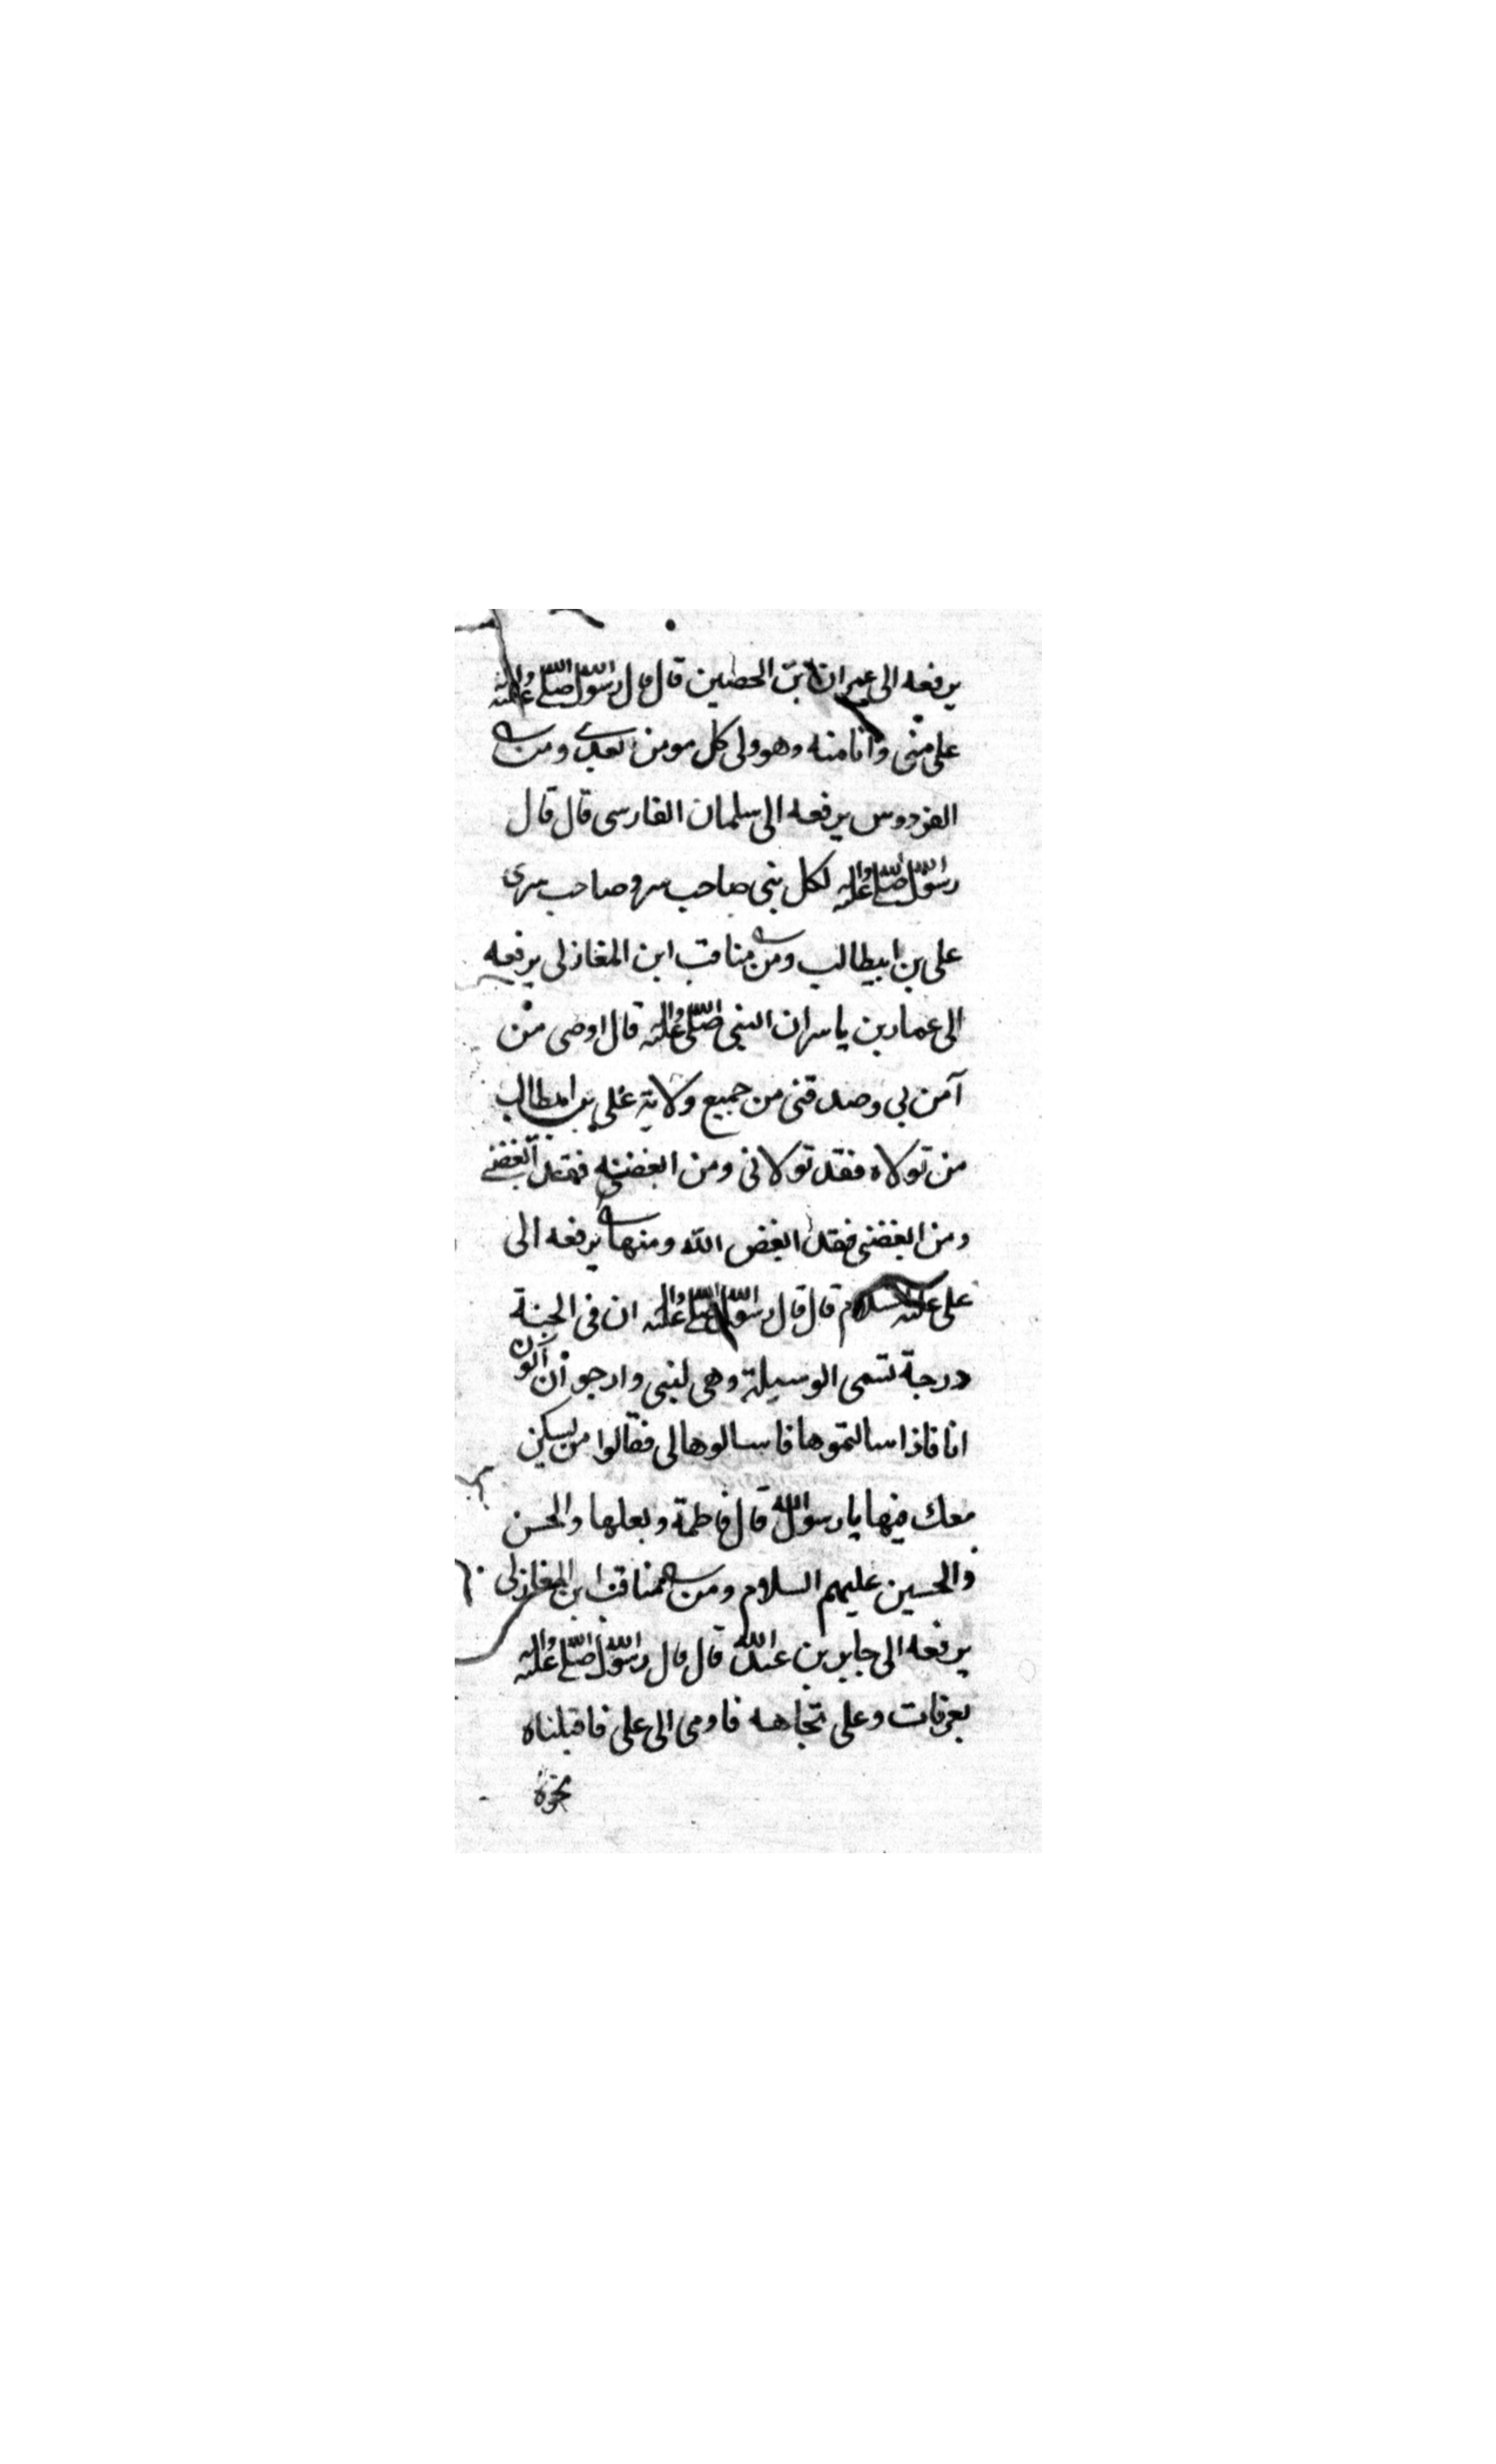 يرفعه الى عمران بن الحصين قال قال رسول الله صلى الله عليه واله
على منى وانا منه وهو ولى كل مومن بعدى ومن
الفردوس يرفعه الى سلمان الفارسى قال قال
رسول الله صلى الله عليه واله لكل نبى صاحب سر وصاحب سرى
على بن ابيطالب ومن مناقب ابن المغازلى يرفعه
الى عمار بن ياسر ان النبى صلى الله عليه واله قال اوصى من
آمن بى وصدقنى من جميع ولاية على بن ابيطالب
من تولاه فقد تولانى ومن ابغضه فقد ابغضنى
ومن ابغضنى فقد ابغض الله ومنها يرفعه الى
على عليه السلام قال قال رسول الله صلى الله عليه واله ان فى الجنة
درجة تسمى الوسيلة وهى لنبى وارجو ان اكون
انا فاذا سالتموها فاسالوها لى فقالوا من يسكن
معك فيها يا رسول الله قال فاطمة وبعلها والحسن
والحسين عليهم السلام ومن مناقب ابن المغازلى
يرفعه الى جابر بن عبد الله قال قال رسول الله صلى الله عليه واله
بعرفات وعلى تجاهه فاومى الى على فاقبلناه
نحوه